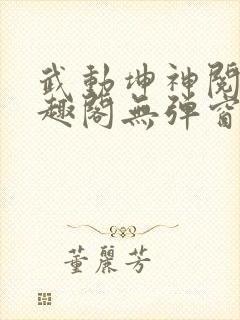 武動坤神閱
趣閣無彈窗
董麗芳